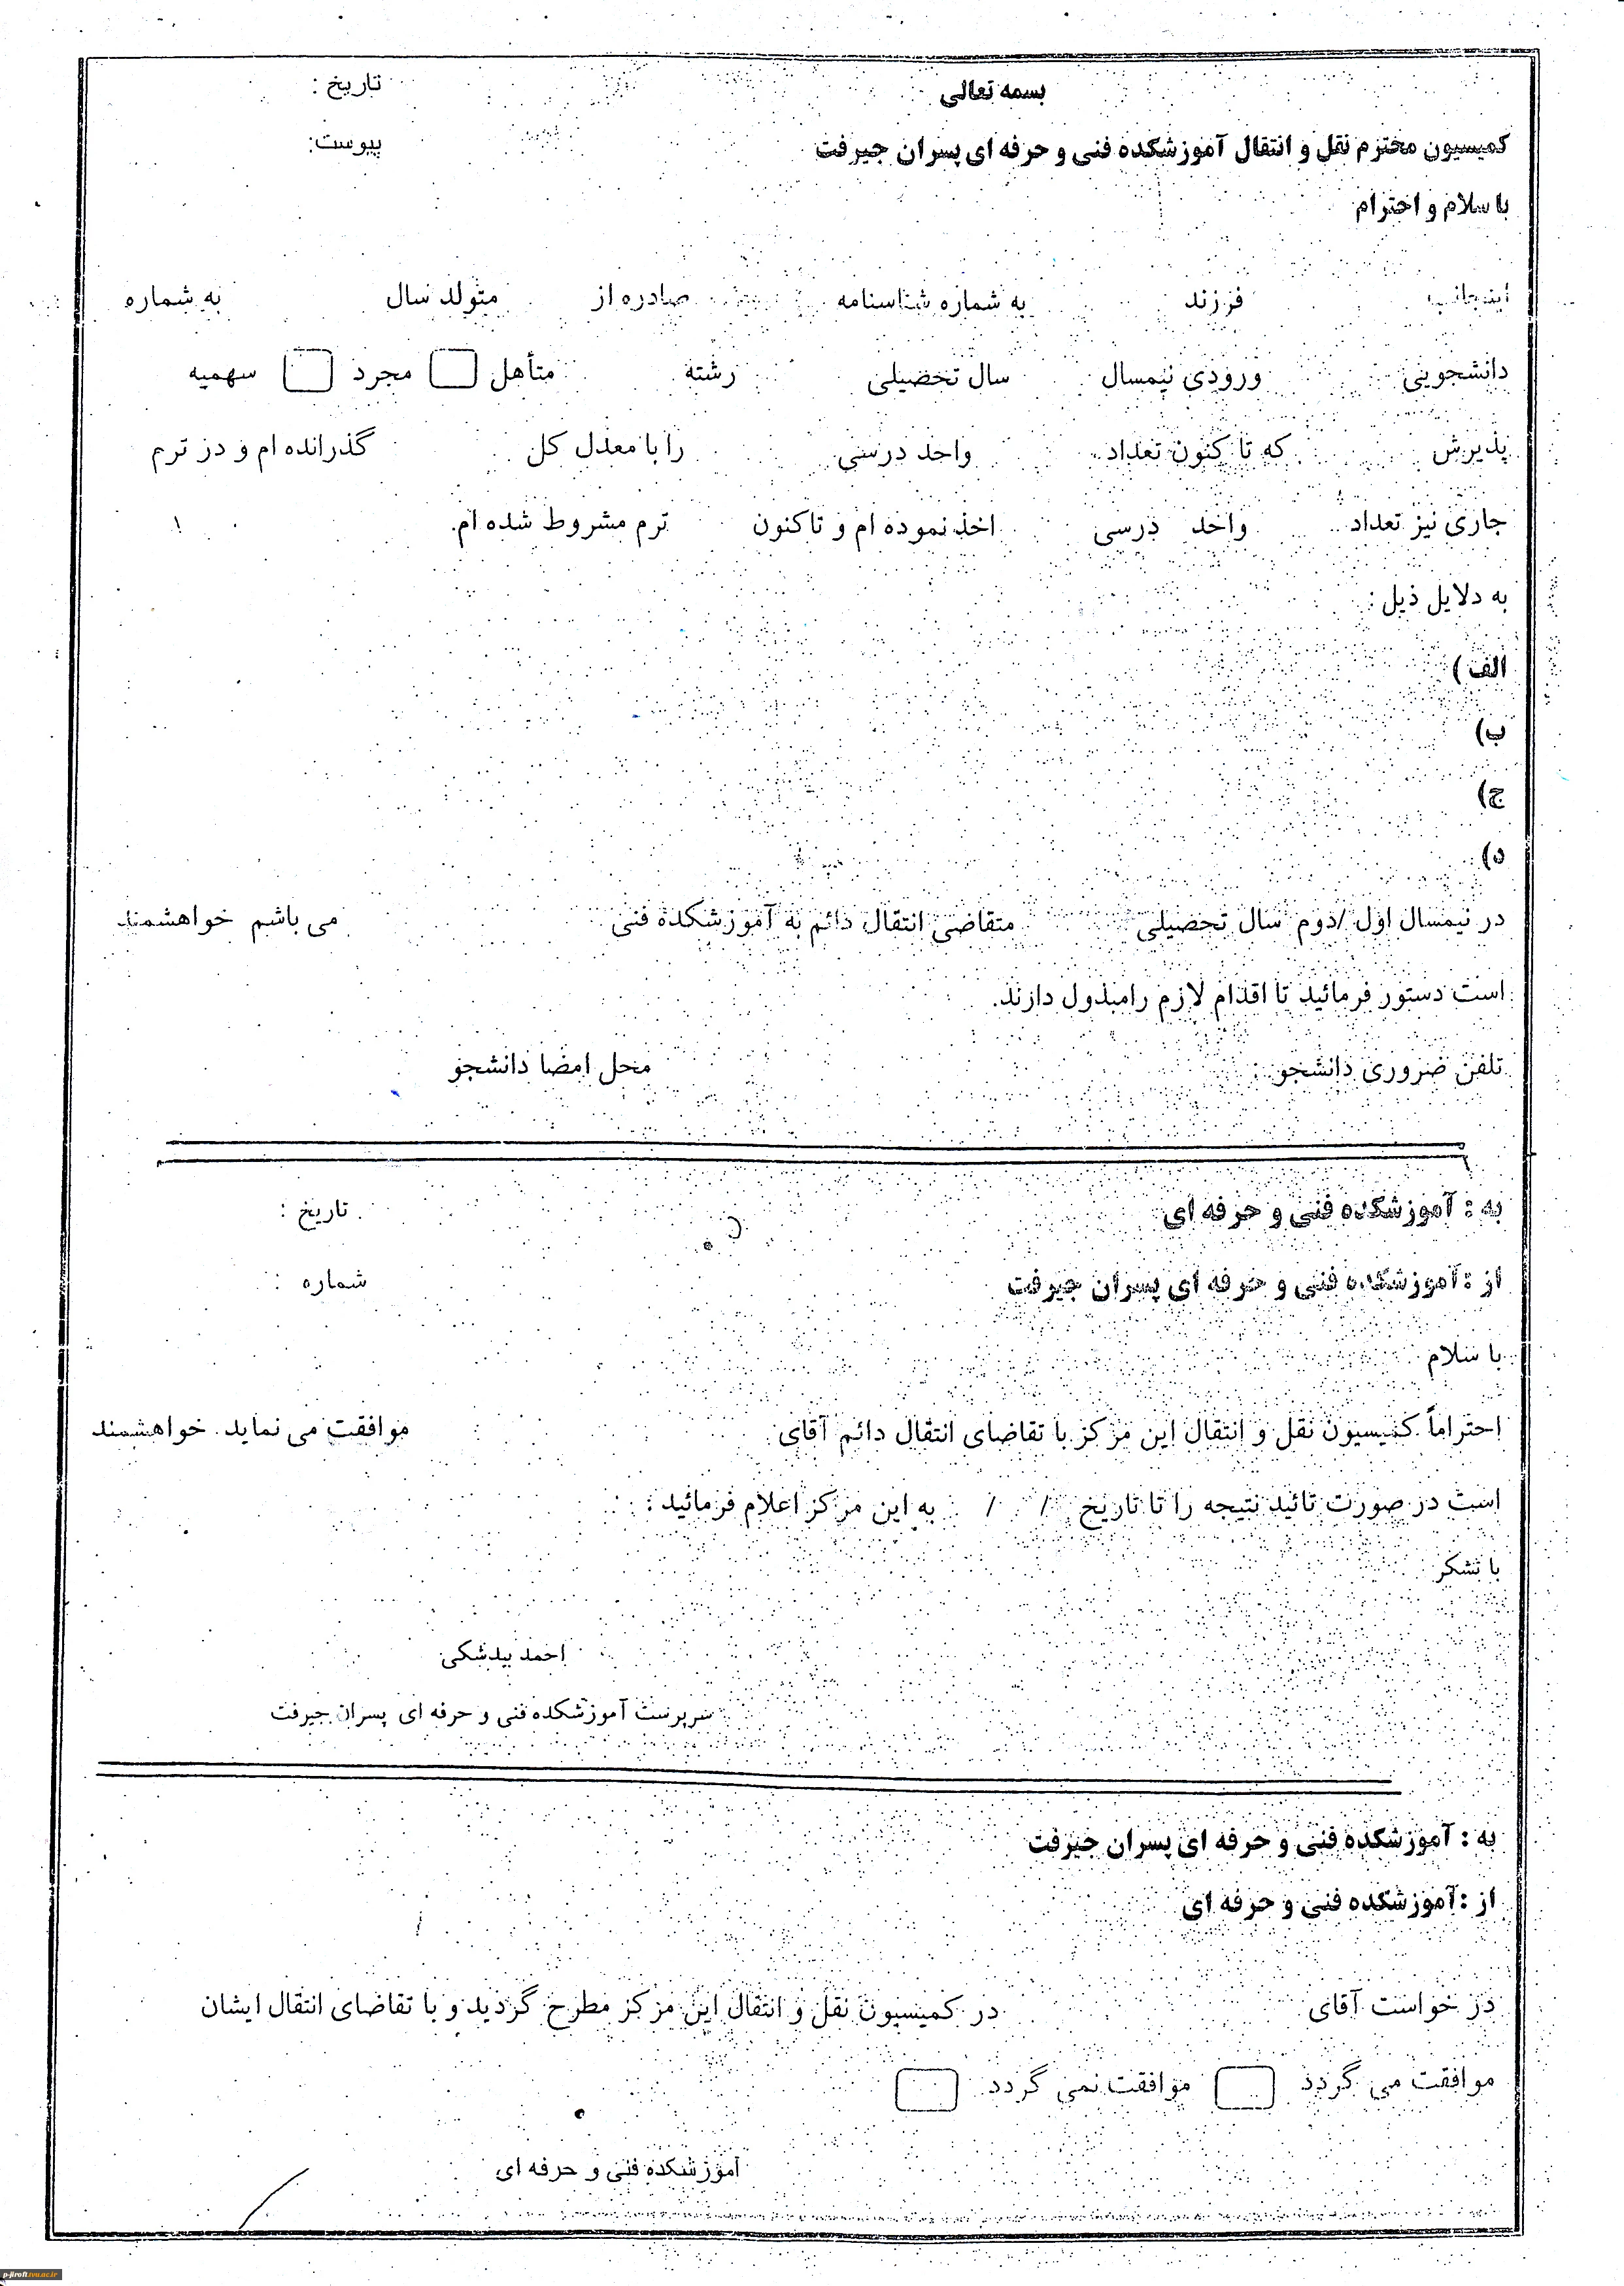 بسمه تعالی
تاریخ :
کمیسیون محترم نقل و انتقال آموزشکده فنی و حرفه ای پسران جیرفت
پیوست:
با سلام و احترام
اینجانب فرزند به شماره شناسنامه صادره از متولد سال به شماره
دانشجویی ورودی نیمسال سال تحصیلی رشته متأهل مجرد سهمیه
پذیرش که تا کنون تعداد واحد درسی را با معدل کل گذرانده ام و در ترم
جاری نیز تعداد واحد درسی اخذ نموده ام و تاکنون ترم مشروط شده ام.
به دلایل ذیل :
الف )
ب)
ج)
د)
در نیمسال اول /دوم سال تحصیلی متقاضی انتقال دائم به آموزشکده فنی می باشم خواهشمند
است دستور فرمائید تا اقدام لازم رامبذول دارند.
تلفن ضروری دانشجو : محل امضا دانشجو
به : آموزشکده فنی و حرفه ای
تاریخ :
از : آموزشکده فنی و حرفه ای پسران جیرفت
شماره :
با سلام
احتراماً کمیسیون نقل و انتقال این مرکز با تقاضای انتقال دائم آقای موافقت می نماید. خواهشمند
است در صورت تائید نتیجه را تا تاریخ / / به این مرکز اعلام فرمائید :
با تشکر
احمد بیدشکی
سرپرست آموزشکده فنی و حرفه ای پسران جیرفت
به : آموزشکده فنی و حرفه ای پسران جیرفت
از :آموزشکده فنی و حرفه ای
در خواست آقای در کمیسیون نقل و انتقال این مرکز مطرح گردید و با تقاضای انتقال ایشان
موافقت می گردد موافقت نمی گردد
آموزشکده فنی و حرفه ای
p-jiroft.tvu.ac.ir